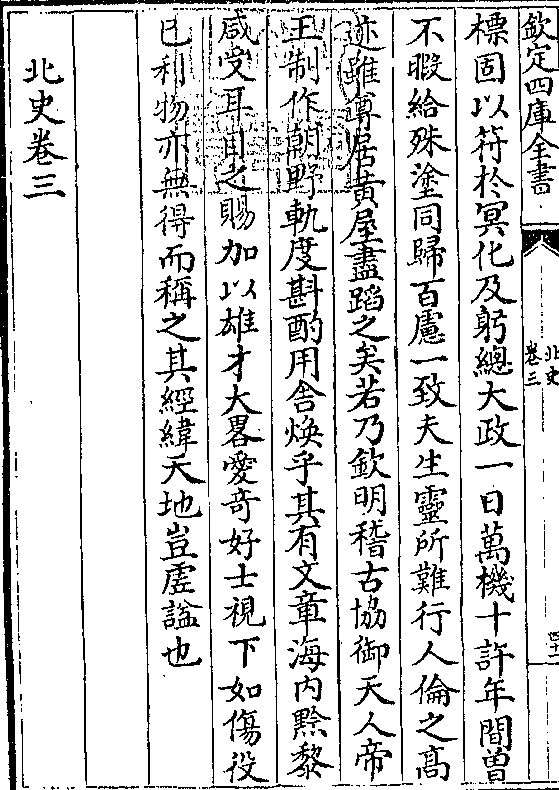 欽定四庫全書
北史
卷三
四十二
標固以符於冥化及躬總大政一日萬機十許年間曽
不暇給殊塗同歸百慮一致夫生靈所難行人倫之髙
迹雖尊居黄屋盡蹈之矣若乃欽明稽古協御天人帝
王制作朝野軌度斟酌用舍煥乎其有文章海内黔黎
咸受耳目之賜加以雄才大畧愛竒好士視下如傷役
已利物亦無得而稱之其經緯天地豈虚謚也
北史卷三